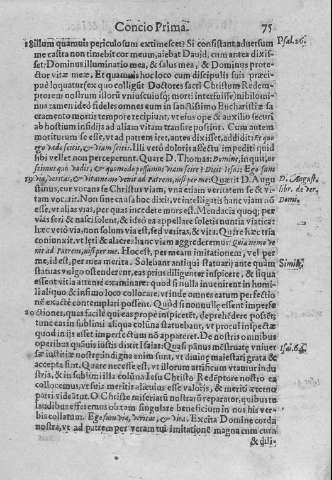 Concio Prima. 75
illum quamuis periculosum extimescet? Si consistant aduersum
me castra non timebit cor meum, aiebat Dauid, cum antea dixis-
set: Dominus illuminatio mea, & salus mea, & Dominus prote-
ctor vitæ meæ. Et quamuis hoc loco cum discipulis suis præci-
puè loquatur (ex quo colligūt Doctores sacri Christum Redem-
ptorem nostrum illorū vnicuiusq; morti interfuisse) nihilomi-
nus tamen ideo fideles omnes eum in sanctissimo Eucharistiæ sa-
cramento mortis tempore recipiunt, vt eius ope & auxilio securi
ab hostium insidijs ad aliam vitam transire possint. Cum autem
moriturum se esse, vt ad patrem iret, antea dixisset, addidit: Et quo
ego vado scitis, & viam scitis. Illi verò doloris affectu impediti quid
sibi vellet non perceperunt. Quare D. Thomas: Domine, inquit, ne-
scimus quò vadis, & quomodo possumus viam scire? Dixit Iesus: Ego sum
via, veritas, & vita: nemo venit ad Patrem, nisi per me. Quærit D. Augu-
stinus, cur vocans se Christus viam, vna etiam veritatem se & vi-
tam vocarit. Non sine causa hoc dixit, vt intelligatis hanc viam nō
esse, vt alias vias, per quas incedere mors est. Mendacia quoq; per
vias seri & nasci solent, & ideò ea appellare soleis nuntia viatica:
hæc verò via, non solum via est, sed veritas, & vita. Quare hæc tria
coniunxit, vt læti & alacres hanc viam aggrederemur. Quia nemo ve-
nit ad Patrem, nisi per me. Hoc est, per meam imitationem, vel per
me, id est, per mea merita. Solebant antiqui statuarij ante quàm
statuas vulgo ostenderent, eas prius diligenter inspicere, & si qua
essent vitia attentè examinare: quod si nulla inuenirent in homi-
ali quo & infimo loco collocare, vt inde omnes earum perfectio-
nē exactè contemplari possent. Quòd si nonnullę essent imperfe-
ctiones, quas facilè qui eas propè inspiceret, deprehédere posset;
tunc eas in sublimi aliqua colūna statuebant, vt procul inspectæ
quod in ijs esset imperfectum nō appareret. De nostris omnibus
operibus quamuis iustis dixit Isaias: Quasi pannus mēstruatę vniuer-
sæ iustitiæ nostræ: indigna enim sunt, vt diuinę maiestati grata &
accepta sint. Quare necesse est, vt illorum artificum vtamur indu
stria, & in sublimi ista columna Iesu Christo Redēptore nostro ea
collocemus, vt seia merita alicuius esse valoris, & merita æterno
patri videātur. O Christe miseriarū nostrarū reparator, quibus te
laudibus efferemus ob tam singulare beneficium in nos his ver-
bis collatum. Ego sum via, veritas, & vita. Excita Domine corda
nostra, vt ad patrem per veram tui imitationē magna cum cura
& dili-
Psal. 26.
D. August.
libr. de ver,
Domi,
Simile,
Isai. 64.